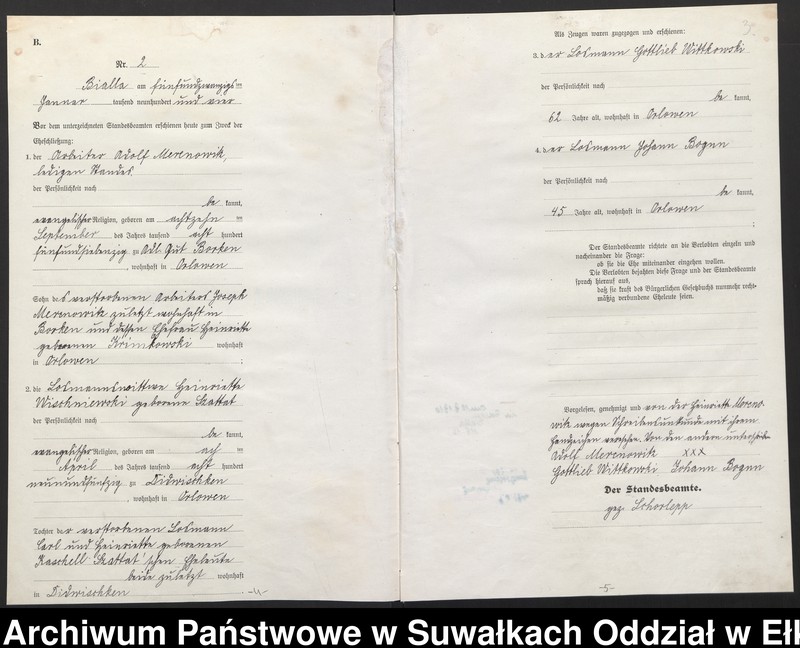 B.
Nr. 2
Bialla am fünfundzwanzigs ten
Januar tausend neunhundert und vier
Vor dem unterzeichneten Standesbeamten erschienen heute zum Zweck der
Eheschließung:
1. der Arbeiter Adolf Merenowik,
ledigen Standes
der Persönlichkeit nach
be kannt,
evangelischer Religion, geboren am achtzehn ten
September des Jahres tausend acht hundert
fünfundsiebenzig zu Adl. Gut Borken
, wohnhaft in Orlowen
;
Sohn des verstorbenen Arbeiters Joseph
Merenowik zuletzt wohnhaft in
Borken und dessen Ehefrau Heinriette
geborenen Krimkowski wohnhaft
in Orlowen ;
2. die Losmannswittwe Heinriette
Wischniewski geborene Skattat
der Persönlichkeit nach
be kannt,
evangelischer Religion, geboren am ten
April des Jahres tausend acht hundert
neunundfünfzig zu Didwischken
, wohnhaft in Orlowen
Tochter der verstorbenen Losmann
Carl und Heinriette geborenen
Kaschell Skattat'schen Eheleute
beide zuletzt wohnhaft
in Didwischken .
-4-
Als Zeugen waren zugezogen und erschienen:
3. der Losmann Gottlieb Wittkowski
der Persönlichkeit nach
be kannt,
62 Jahre alt, wohnhaft in Orlowen
4. der Losmann Johann Bogun
der Persönlichkeit nach
be kannt,
45 Jahre alt, wohnhaft in Orlowen
;
Der Standesbeamte richtete an die Verlobten einzeln und
nacheinander die Frage:
ob sie die Ehe miteinander eingehen wollen.
Die Verlobten bejahten diese Frage und der Standesbeamte
sprach hierauf aus,
daß sie kraft des Bürgerlichen Gesetzbuchs nunmehr recht-
mäßig verbundene Eheleute seien.
Vorgelesen, genehmigt und von der Heinriette Mereno-
wik wegen Schreibensunkunde mit ihrem
Handzeichen versehen. Von den andern unterschrieben
Adolf Merenowik XXX
Gottlieb Wittkowski Johann Bogun
Der Standesbeamte.
gez. Schorlepp
-5-
Archiwum Państwowe w Suwałkach Oddział w Ełk